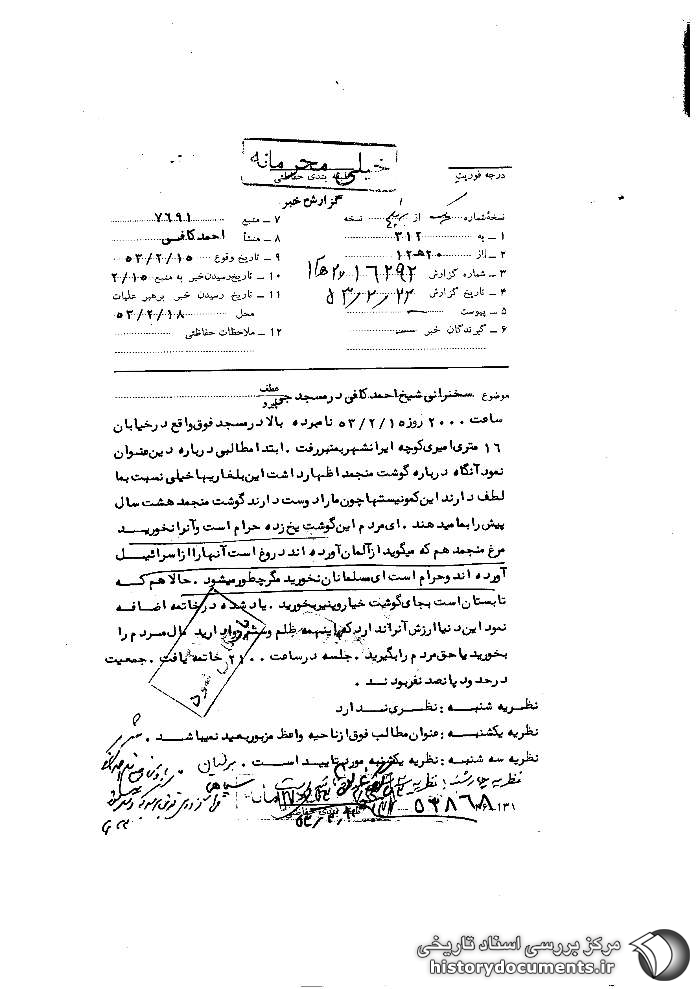 خیلی محرمانه
طبقه بندی حفاظتی
درجه فوریت
گزارش خبر
نسخهٔ شماره از نسخه
۱ – به ۳۱۲
۲ – از ۲۰ هـ ۱۲
۳ – شماره گزارش ۱۶۲۹۲
۴ – تاریخ گزارش ۵۳/۲/۲۲
۵ – پیوست
۶ – گیرندگان خبر
۷ – منبع ۷۶۹۱
۸ – منشأ احمد کافی
۹ – تاریخ وقوع ۵۳/۲/۱۵
۱۰ – تاریخ رسیدن خبر به منبع ۲/۱۵
۱۱ – تاریخ رسیدن خبر برهبر عملیات
محل ۵۳/۲/۱۸
۱۲ – ملاحظات حفاظتی
موضوع سخنرانی شیخ احمد کافی در مسجد جی
عطف
پیرو
ساعت ۲۰۰۰ روز ۵۳/۲/۱۵ نامبرده بالا در مسجد فوق واقع در خیابان
۱۶ متری امیری کوچه ایرانشهر بمنبر رفت . ابتدا مطالبی درباره دین عنوان
نمود آنگاه درباره گوشت منجمد اظهار داشت این بلغاریها خیلی نسبت بما
لطف دارند این کمونیستها چون ما را دوست دارند گوشت منجمد هشت سال
پیش را بما میدهند . ای مردم این گوشت یخ زده حرام است و آنرا نخوریـد
مرغ منجمد هم که میگوید از آلمان آورده اند دروغ است آنها را از اسرائیـل
آورده اند و حرام است ای مسلمانان نخورید مگر چطور میشود . حالا هم کـه
تابستان است بجای گوشت خیار و پنیر بخورید . یاد شده در خاتمه اضافـه
نمود این دنیا ارزش آنرا ندارد که اینهمه ظلم و ستم روا دارید مال مردم را
بخورید یا حق مردم را بگیرید . جلسه در ساعت ۲۱۰۰ خاتمه یافت . جمعیت
در حدود پانصد نفر بودنـد .
نظریه شنبـه : نظـری نـدارد
نظریه یکشنبـه : عنوان مطالب فوق از ناحیه واعظ مزبور بعید نمیباشـد .
نظریه سه شنبه : نظریه یکشنبه مورد تایید اسـت .
نظریه چهارشنبه : نظریه
۵۳۸۶۸
۱۳۱
طبقه بندی حفاظتی
مرکز بررسی اسناد تاریخی
historydocuments.ir